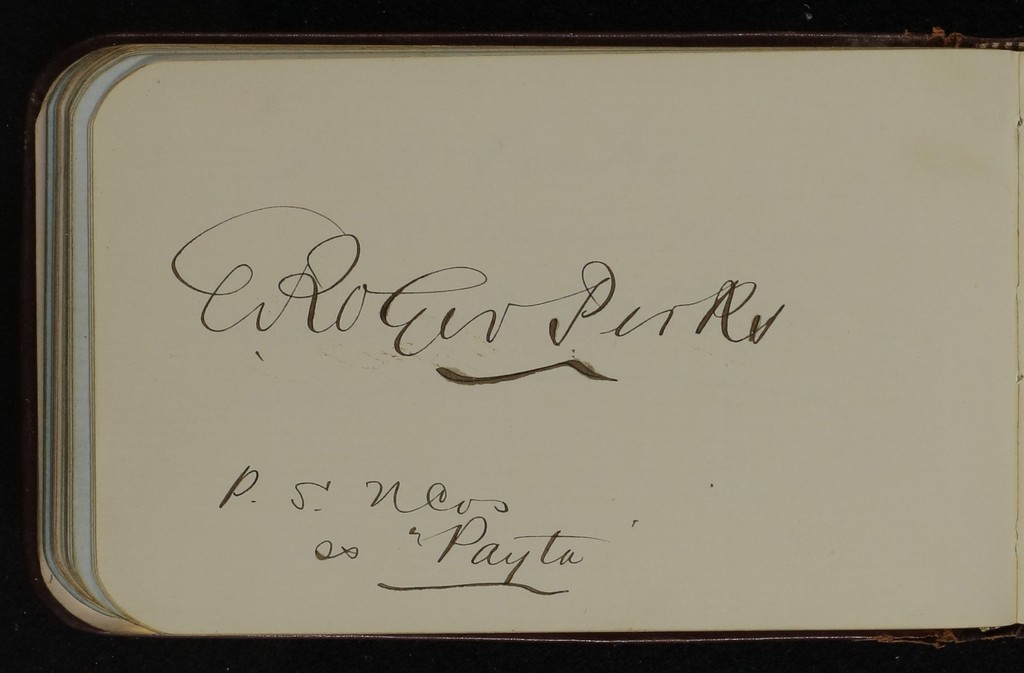 E Roger Perks
P. S. N Cos
ss "Payta"